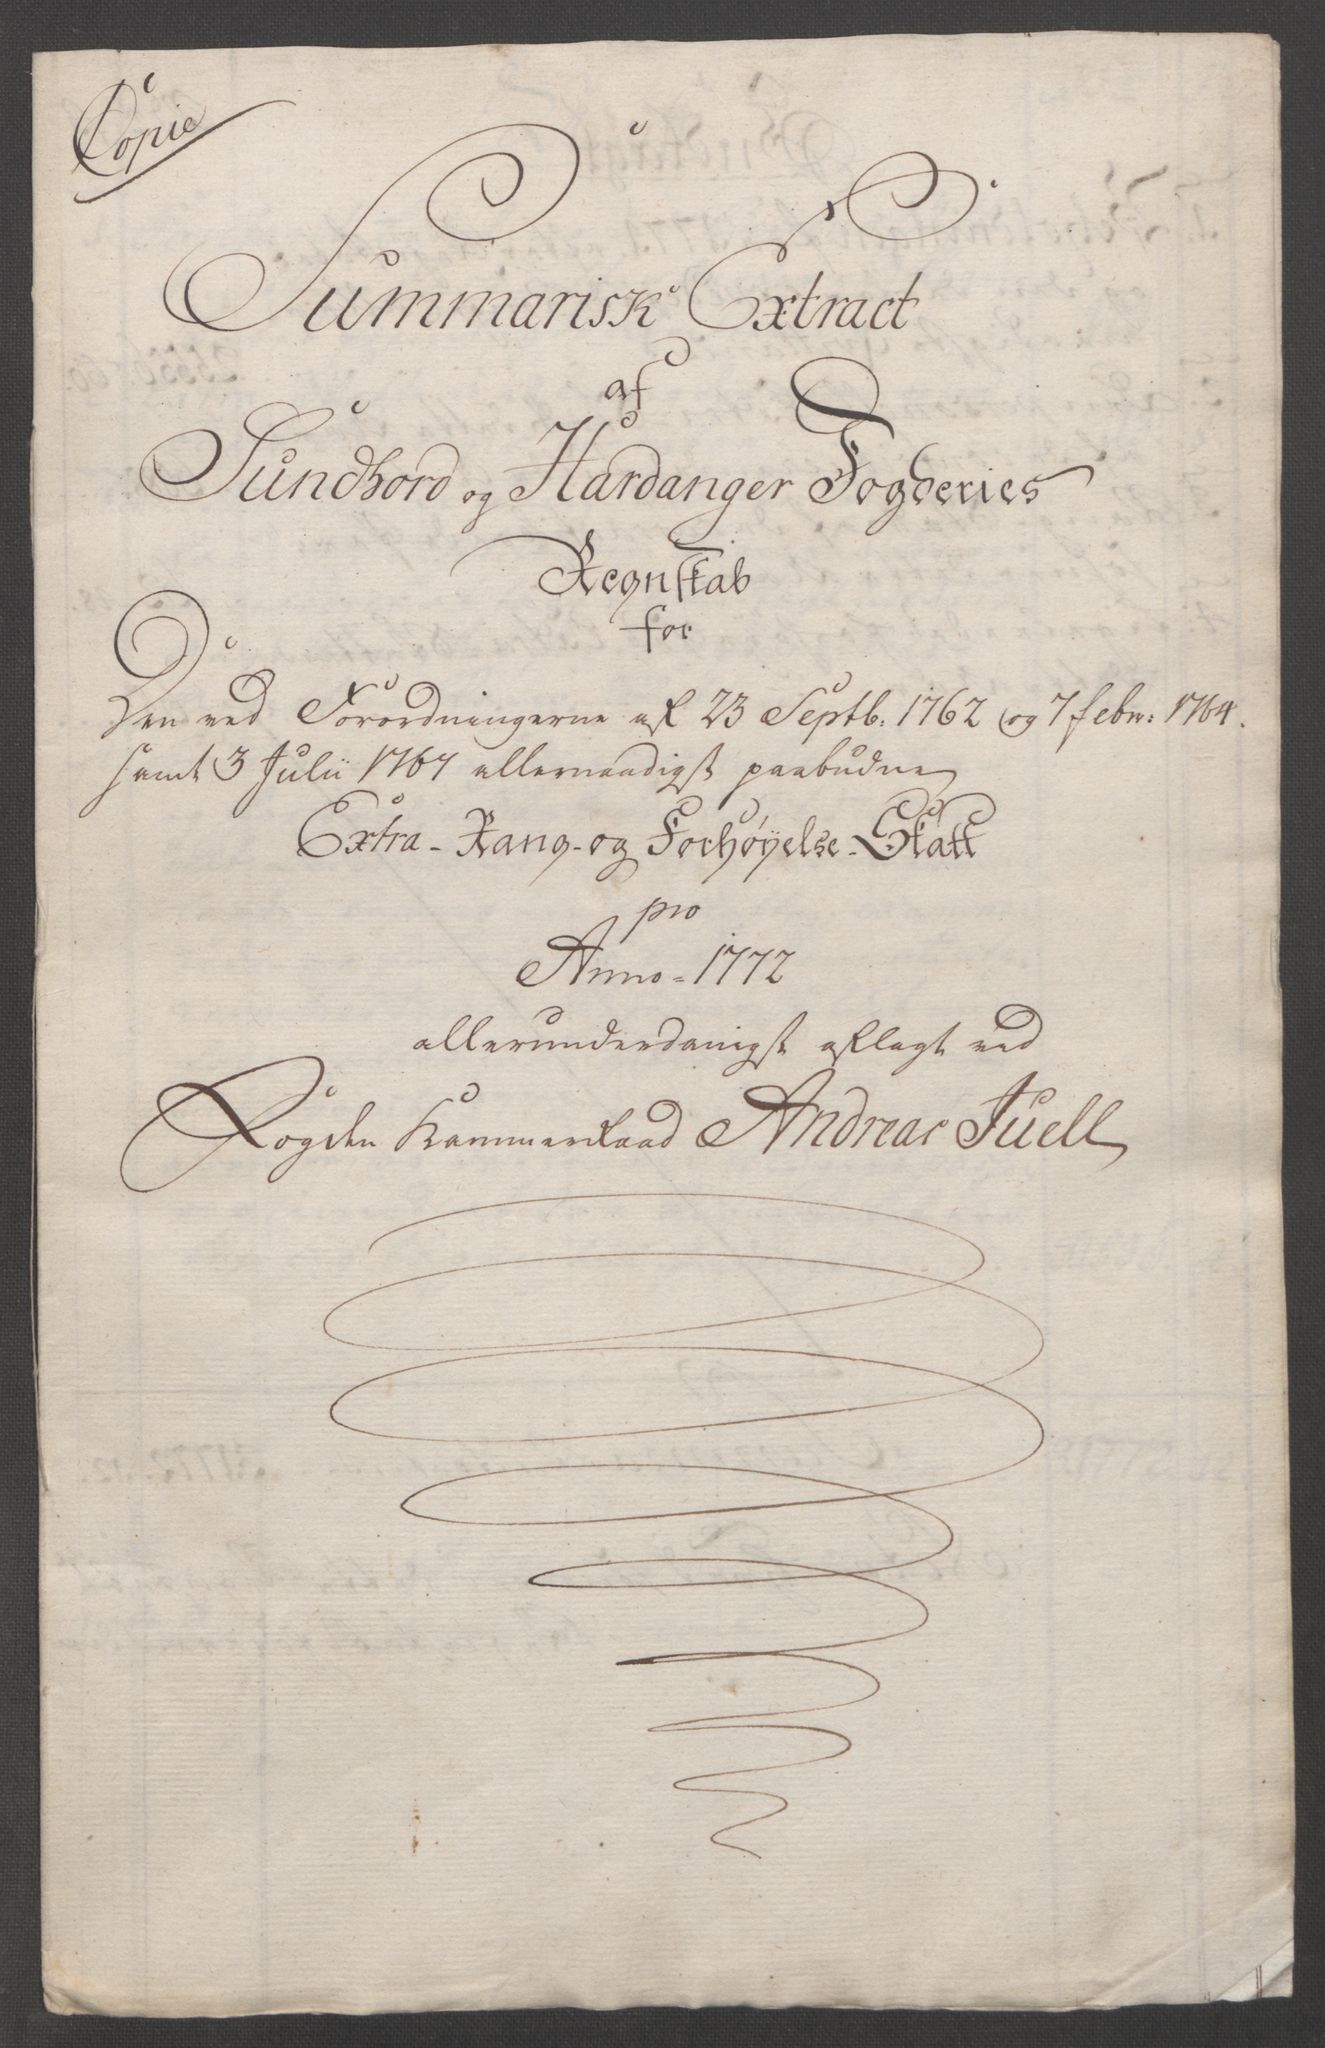 Copie
Summarisk Extract
af
Sundhord og Hardanger Fogderies
Regnskab
for
Den ved Forordningerne af 23 Septb: 1762 og 7 febr: 1764.
samt 3 Julii 1767 allernaadigst paabudne
Extra- Rang- og Forhøyelse-Skatt
pro
Anno- 1772
allerunderdanigst aflagt ved
Fogden Kammerraad Andreas Juell